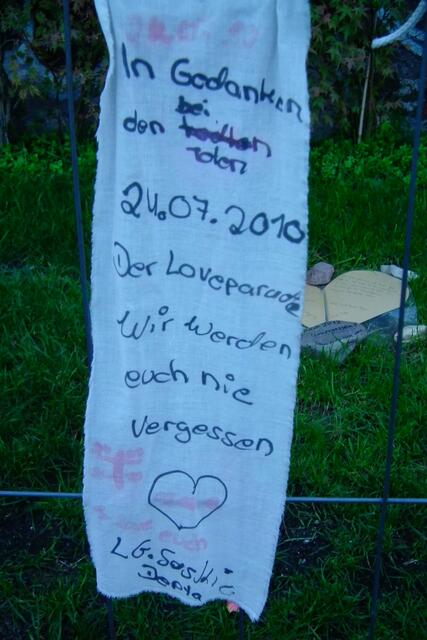 In Gedanken
bei
den
toten
24.07.2010
Der Loveparade
Wir werden
euch nie
vergessen
LG. Saskia
Denya